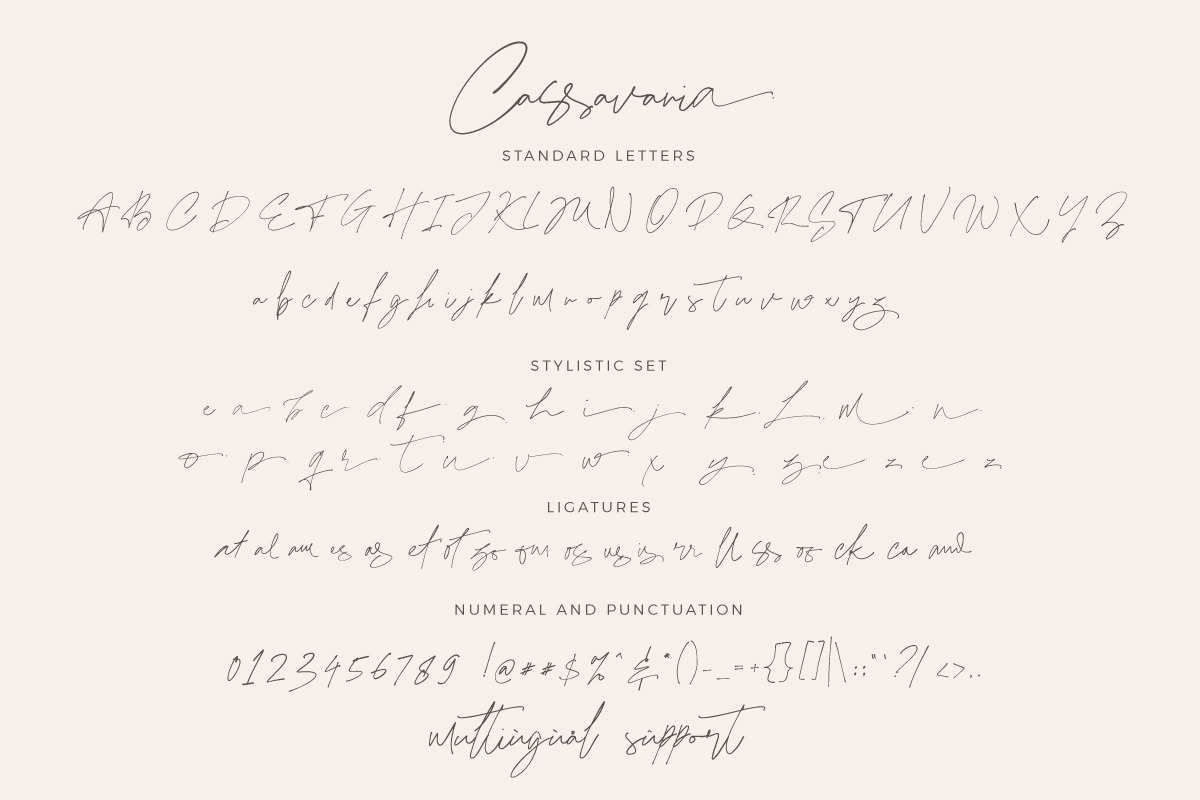 Cassavania
STANDARD LETTERS
A B C D E F G H I J K L M N O P Q R S T U V W X Y Z
a b c d e f g h i j k l m n o p q r s t u v w x y z
STYLISTIC SET
e a b c d f g h i j k l m n
o p q r t u v w x y z e z e z
LIGATURES
at al am es as et ot so om os us is rr ll ss os ck ca and
NUMERAL AND PUNCTUATION
0 1 2 3 4 5 6 7 8 9 ! @ # # $ % ^ & * ( ) - _ = + { } [ ] | \ : ; " ' ? / < > . ,
multiingual support